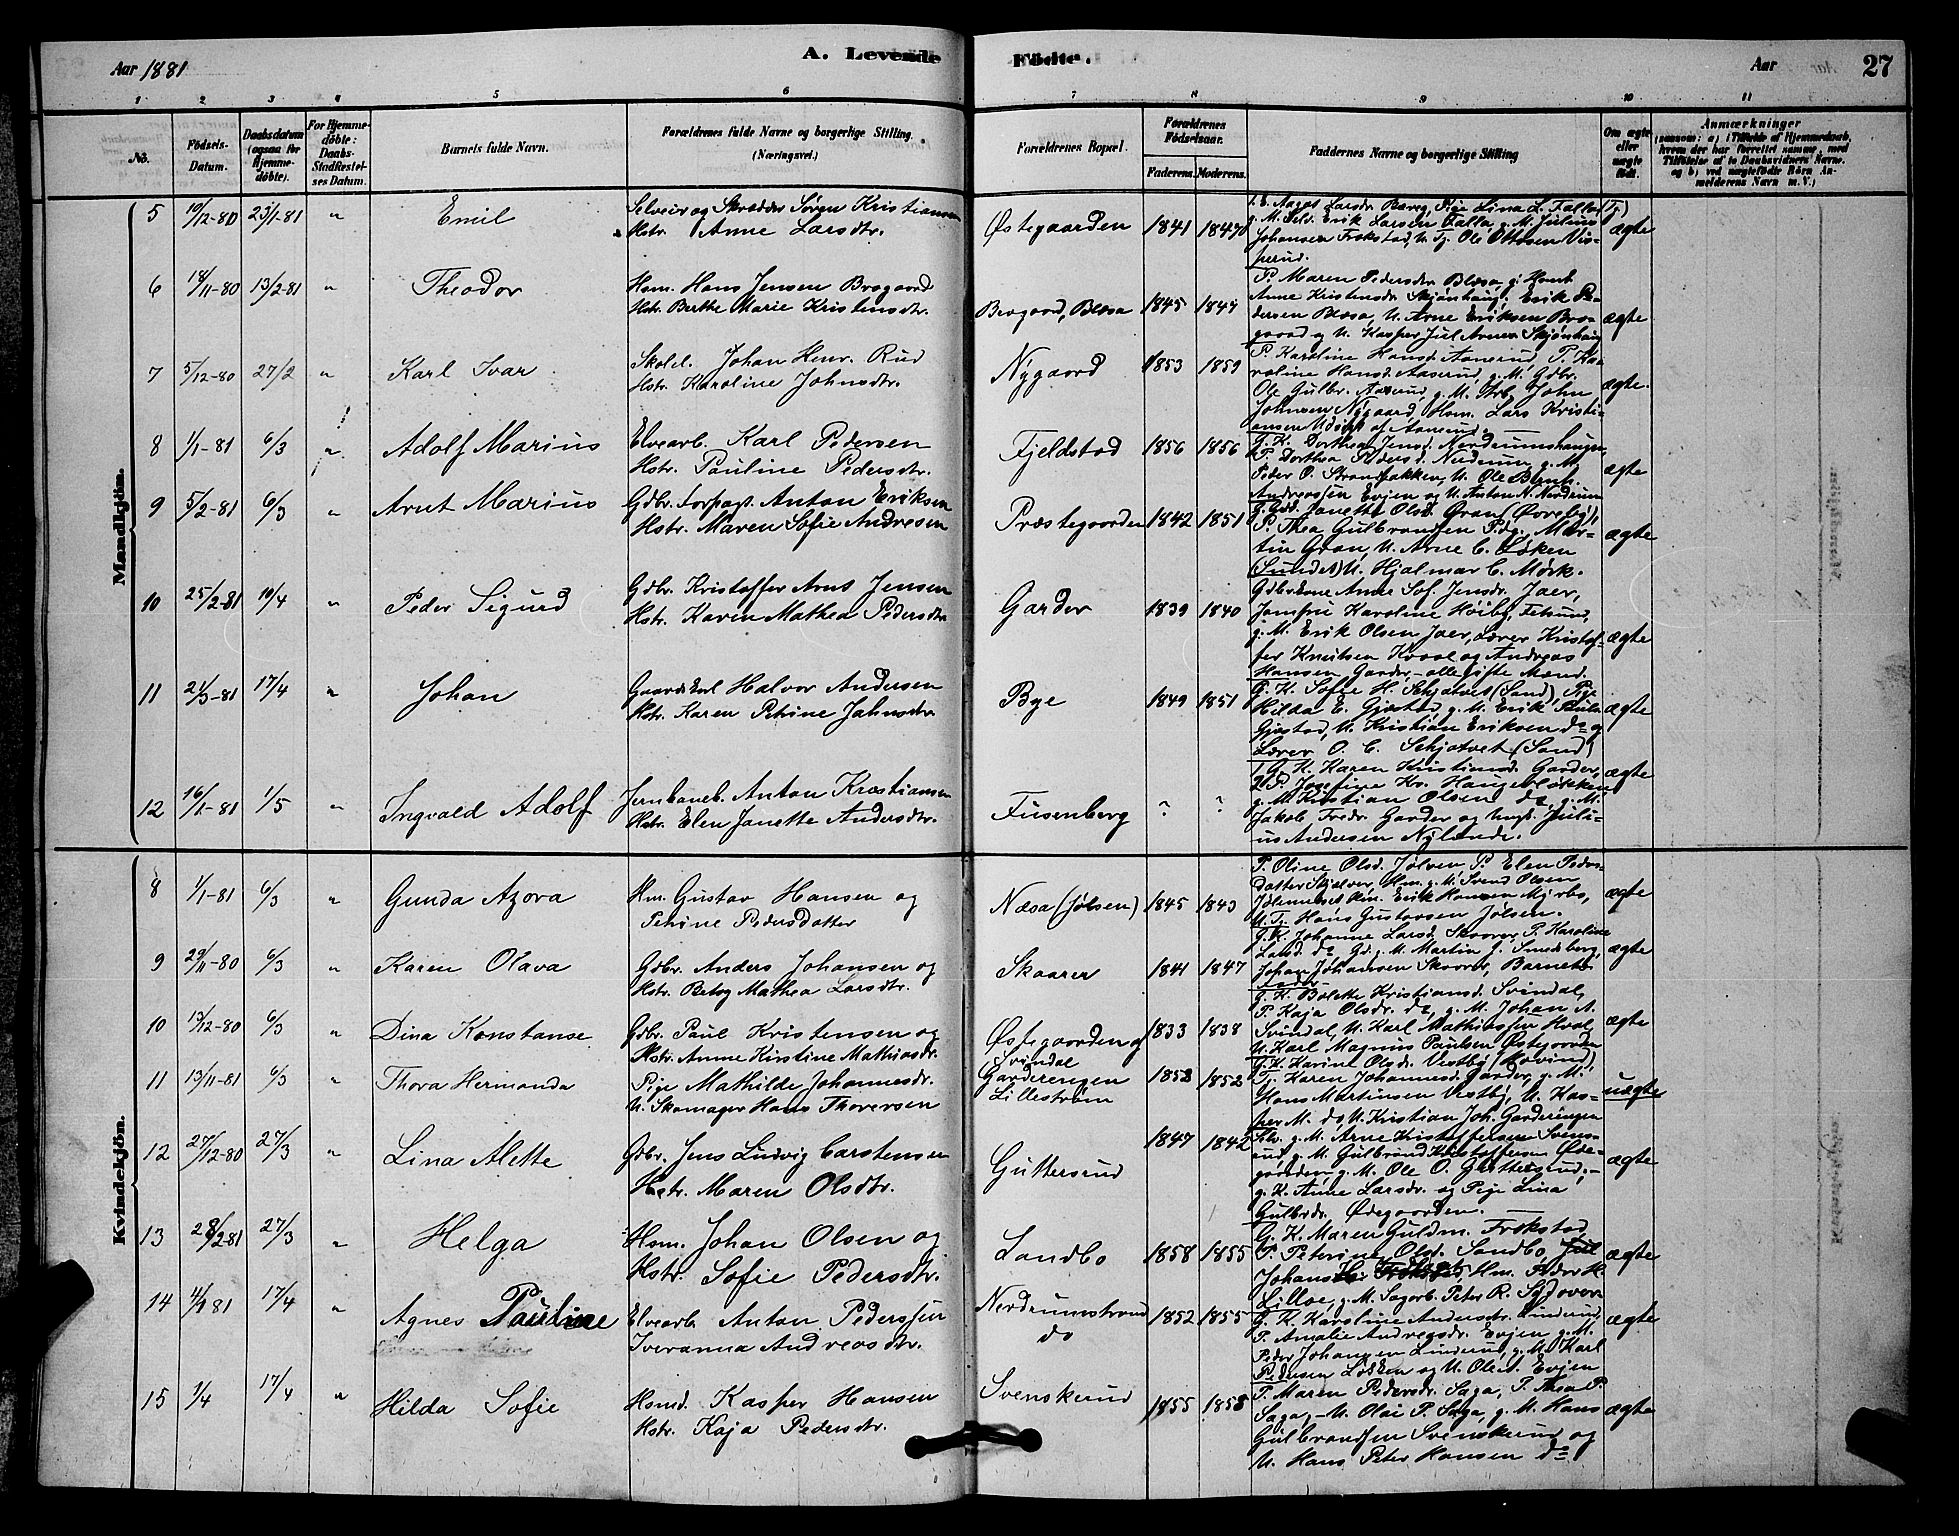 Aar 1881
A. Levende
Fødte.
Aar
27
1 2 3 4 5 6 7 8 9 10 11
No.
Fødsels-Datum.
Daabsdatum (ogsaa for Hjemme-døbte).
For Hjemme-døbte: Daabs-Stadfæstel-ses Datum.
Barnets fulde Navn.
Forældrenes fulde Navne og borgerlige Stilling. (Næringsvei.)
Forældrenes Bopæl.
Forældrenes Fødselsaar.
Faderens. Moderens.
Faddernes Navne og borgerlige Stilling
Om ægte eller uægte født.
Anmærkninger
(saasom: a) i Tilfælde af Hjemmedaab, hvem der har forrettet samme, med Tilføielse af to Daabsvidners Navne, og b) ved uægtefødte Børn An-melderens Navn m. V.)
Mandkjøn.
5 19/12-80 23/1-81 " Emil
Selveier og Skrædder Søren Kristiansen
Hstr. Anne Larsdtr.
Østegaarden 1841 ægte
6 18/11-80 13/2-81 " Theodor
Hsm. Hans Jensen Brogaard
Hstr. Berthe Marie Kristensdtr.
Brogaard, Blæsa 1845 1844
P. Maren Pedersdr Blæsa, g. Kone
Anne Kristensdr Skjønhaug, Erik Pe-
dersen Blæsa, U. Arne Eriksen Bro-
gaard og U. Kasper Jul Arnes. Skjønhaug
ægte
7 5/12-80 27/2 " Karl Ivar
Skolel. Johan Henr. Rud
Hstr. Karoline Johnsdtr.
Nygaard 1853 1859
P. Karoline Hansd. Aaserud, P. Ka-
roline Hansd. Aaserud, g. M. Gdbr.
Ole Gulbr. Aaserud, g. M. Arb. John
Johnsen Nygaard, Hsm. Lars Kristi-
ægte.
8 1/1-81 6/3 " Adolf Marius
Elvearb. Karl Pedersen
Hstr. Pauline Pedersdtr.
Fjeldstad 1856 1856
G. K. Dorthea Jensd. Nerdrumshaugen
P. Dorthea Pedersd. Nerdrum, g. M.
Peder O. Strandbakken, U. Ole Bernh.
Andreassen Evjen og U. Anton N. Nerdrum
ægte
9 5/2-81 6/3 " Arnt Marius
Gdbr. Forpagt. Anton Eriksen
Hstr. Maren Sofie Andresen
Præstegaarden 1842 1851
P. Thea Gulbrandsen Pdg., Mar-
tin Gran, U. Arne C. Løken
(Sundet) U. Hjalmar C. Mørk.
ægte
10 25/2-81 10/4 " Peder Sigurd
Gdbr. Kristoffer Arnt Jensen
Hstr. Karen Mathea Pedersdtr.
Garder 1839 1840
Gdbrkone Anne Sof. Jensdr. Jaer,
Jomfru Karoline Høiby, Fetsund,
g. M. Erik Olsen Jaer, Lærer Kristof-
fer Knutsen Kvaal og Andreas
Hansen Garder - alle gifte Mænd.
ægte
11 21/3-81 17/4 " Johan
Halvor Andersen
Hstr. Karen Petrine Jahnsdtr.
Bye 1849 1851
G. K. Sofie H. Schjatvet (Sand), Pige
Hilda E. Gjøstad, g. M. Erik Paulsn
Gjøstad, U. Kristian Eriksen do og
Lærer O. C. Schjatvet (Sand)
ægte
12 16/1-81 1/5 " Ingvald Adolf
Jernbaneb. Anton Kristiansen
Hstr. Elen Janette Andersdtr.
Fusenberg ? ?
G. K. Karen Kristiansd. Garder,
g. M. Kristian Olsen do, g. M.
Jakob Fredr. Garder og ungk. Juli-
us Andersen Nylænde.
ægte
Kvindekjøn.
8 1/1-81 6/3 " Gunda Azora
Hm. Gustav Hansen og
Petrine Pedersdatter
Næsa (Jølsen) 1845 1843
P. Oline Olsd. Jølsen P. Elen Peders-
datter Skjalver, Hm. g. M. Svend Olsen
U. Tj. Hans Gustavsen Jølsen.
ægte
9 29/11-80 6/3 " Karen Olava
Gdbr. Anders Johansen og
Hstr. Betsy Mathea Larsdtr.
Skaarer 1841 1847
G. K. Johanne Larsd. Skaarer, P. Karoline
Larsd. do Gd. g. M. Martin J. Smedsberg,
Johan Johansen Skaarer, Barnets
Fader
ægte
10 13/12-80 6/3 " Dina Konstanse
Gdbr. Paul Kristensen og
Hstr. Anne Kirstine Mathiasdr.
Østegaarden af
Svindal
1833 1838
G. K. Bolette Kristiansd. Svindal,
P. Kaja Olsdr. do, g. M. Johan A.
Svindal, U. Karl Mathiassen Hval,
U. Karl Magnus Paulsen Østgaarden
ægte
11 13/11-81 6/3 " Thora Hermanda
Pige Mathilde Johannesdr.
U. Skomager Hans Thoresen
Garderengen
Lillestrøm
1853 1852
G. K. Karine Olsdr. Vestby (Høvind),
Tj. Karen Johannesd. Garder, g. M.
Hans Martinsen Vestby, U. Kas-
per M. do U. Kristian Joh. Garderengen
uægte
12 27/12-80 27/3 " Lina Alette
Gdbr. Jens Ludvig Carstensen
Hstr. Maren Olsdtr.
Guttersrud
1847 1842
Selv. g. M. Arne Kristoffersen Svens-
rud, g. M. Gulbrand Kristoffersen Øde-
gaarden, g. M. Ole O. Guttersrud, -
g. K. Anne Larsdr. og Pige Lina
Gulbrdr. Ødegaarden.
ægte
13 28/2 81 27/3 " Helga
Hsm. Johan Olsen og
Hstr. Sofie Pedersdtr.
Sandbo 1858 1855
G. K. Maren Guldm. Frokstad
P. Peterine Olsd. Sandbo,
Hm. Peder K.
Lilloe, g. M. Sagarb. Peter R. Sydover
ægte
14 17/4 " Agnes Pauline
Elvearb. Anton Pederssen
Iveranna Andreasdtr.
Nerdrumstrand
do
1852 1855
G. K. Karoline Andersdtr. Linderud,
P. Amalie Andreasdr. Evjen g. M.
Peder Johansen Linderud, g. M. Karl
Pedersen Løkken og U. Ole A. Evjen
ægte
15 1/4 17/4 " Hilda Sofie
Hsmd. Kasper Hansen
Hstr. Kaja Pedersdtr.
Svenskerud
1855 1858
P. Maren Pedersdr. Saga, P. Thea P.
Saga, - U. Olai P. Saga, g. M. Hans
Gulbrandsen Svenskerud og
U. Hans Peter Hansen do
ægte